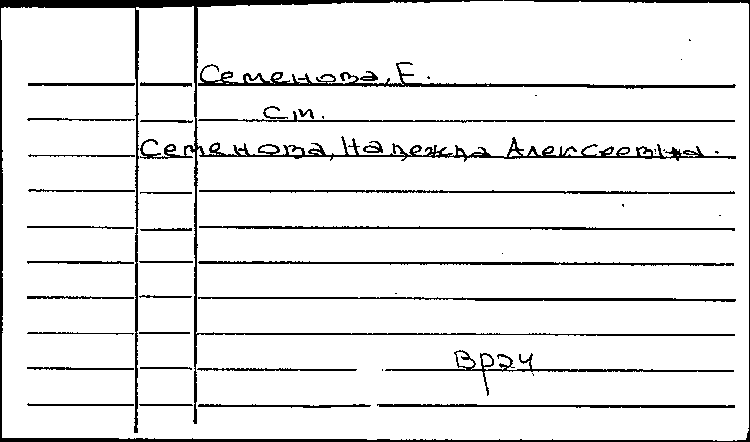 Семенова, Е.
см.
Семенова, Надежда Алексеевна.
Вр24